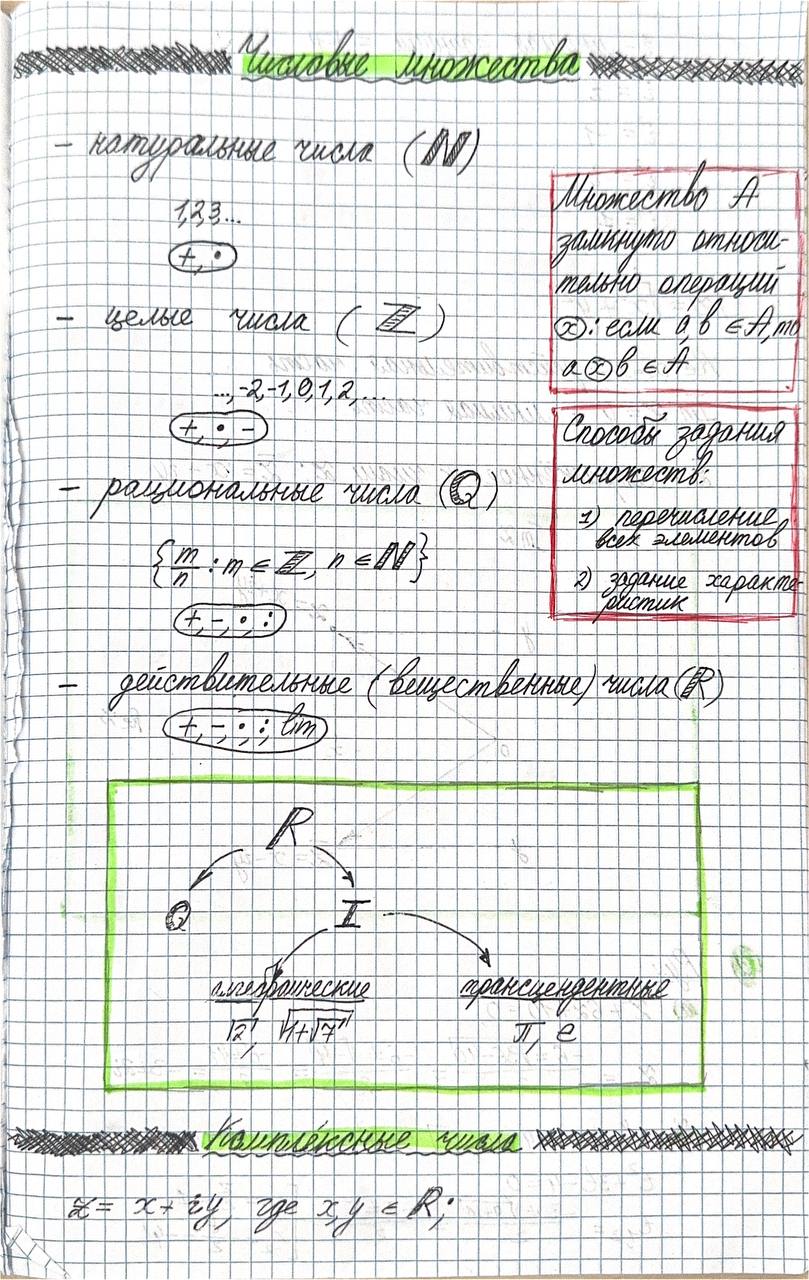 Числовые множества
- натуральные числа (ℕ)
1,2,3,...
+, •
- целые числа (ℤ)
..., -2, -1, 0, 1, 2, ...
+, •, -
- рациональные числа (ℚ)
{m/n : m ∈ ℤ, n ∈ ℕ}
+, -, •, :
- действительные (вещественные) числа (ℝ)
+, -, •, :, lim
Множество A
замкнуто относи-
тельно операций
ⓧ: если a, b ∈ A, то
a ⓧ b ∈ A
Способы задания
множеств:
1) перечисление
всех элементов
2) задание характе-
ристик
ℝ
ℚ I
алгебраические трансцендентные
√2, √(1+√7) π, e
Комплексные числа
z = x + iy, где x, y ∈ ℝ;